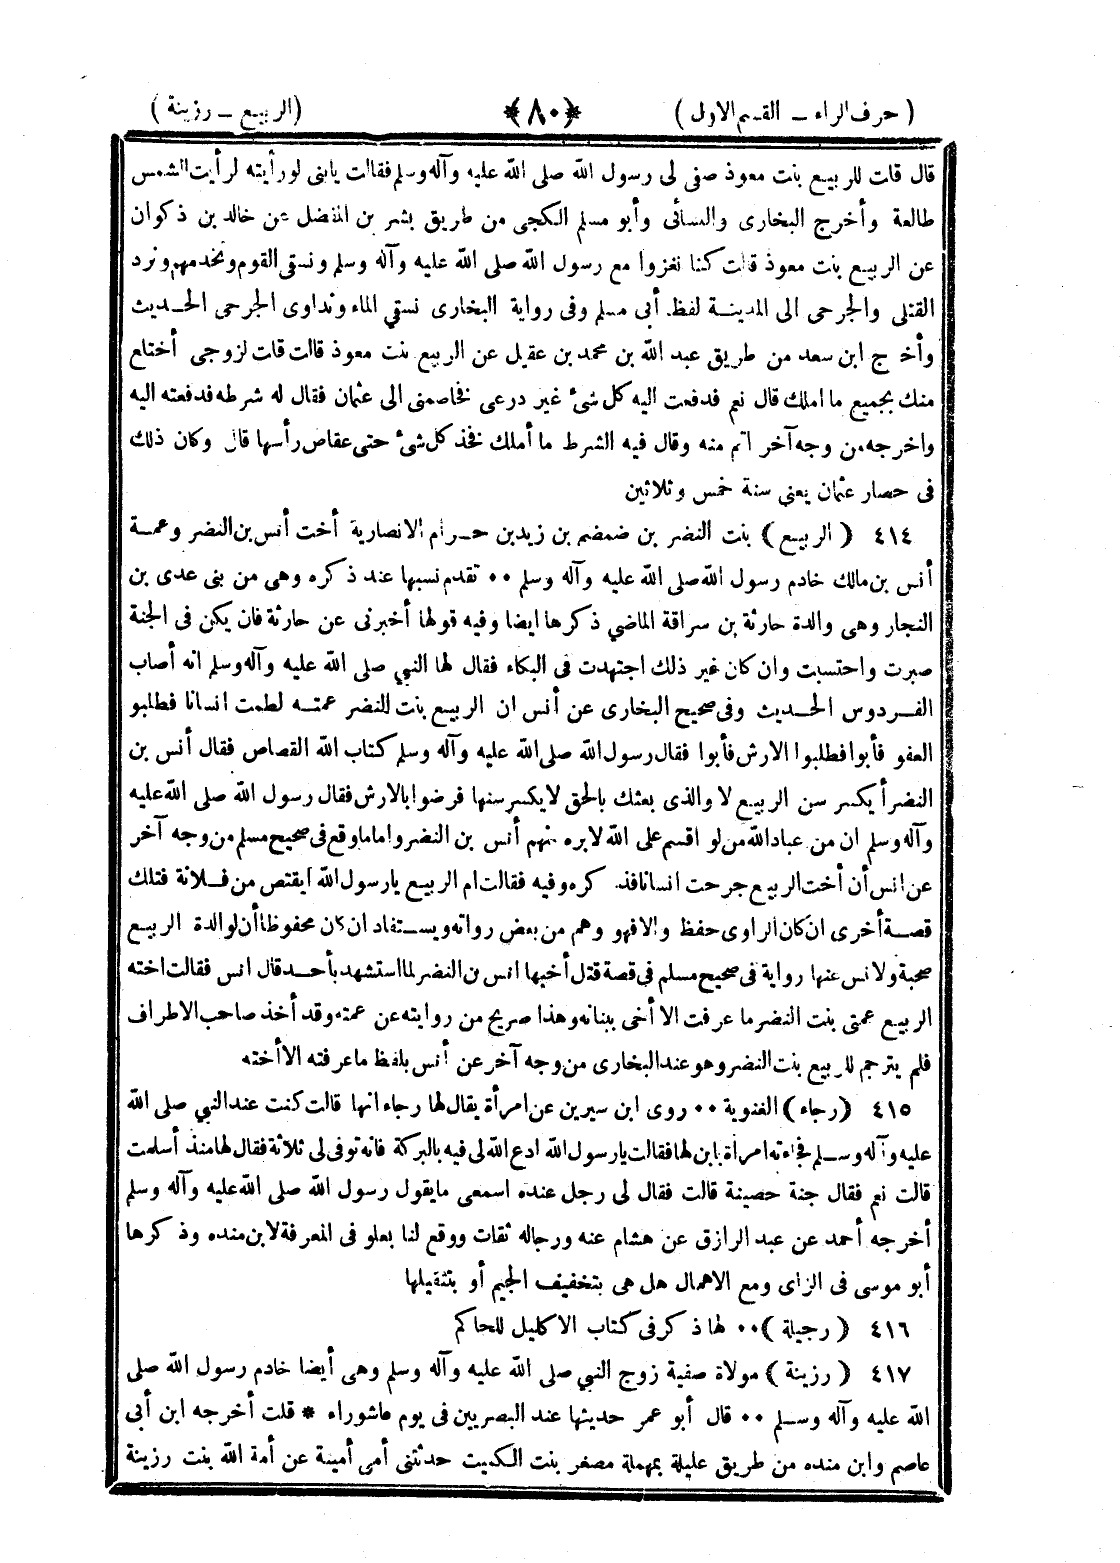 ( حرف الراء ــ القسم الاول ) ﴿٨٠﴾ (الربيع ــ رزينة )
قال قلت للربيع بنت معوذ صفى لى رسول الله صلى الله عليه وآله وسلم فقالت يابنى لورأيته لرأيت الشمس
طالعة وأخرج البخارى والنسائى وأبو مسلم الكجى من طريق بشر بن المفضل عن خالد بن ذكوان
عن الربيع بنت معوذ قالت كنا نغزوا مع رسول الله صلى الله عليه وآله وسلم ونسقى القوم ونخدمهم ونرد
القتلى والجرحى الى المدينة لفظ أبى مسلم وفى رواية البخارى نستقي الماء ونداوى الجرحى الحديث
وأخرج ابن سعد من طريق عبد الله بن محمد بن عقيل عن الربيع بنت معوذ قالت قلت لزوجى أختلع
منك بجميع ما املك قال نعم فدفعت اليه كل شئ غير درعى فخاصمنى الى عثمان فقال له شرطه فدفعته اليه
واخرجه من وجه آخر اتم منه وقال فيه الشرط ما أملك فخذ كل شئ حتى عقاص رأسها قال وكان ذلك
فى حصار عثمان يعني سنة خمس وثلاثين
٤١٤ ( الربيع ) بنت النضر بن ضمضم بن زيد بن حرام الانصارية أخت أنس بن النضر وعمة
أنس بن مالك خادم رسول الله صلى الله عليه وآله وسلم ٠٠ تقدم نسبها عند ذكره وهى من بنى عدى بن
النجار وهى والدة حارثة بن سراقة الماضي ذكرها ايضا وفيه قولها أخبرنى عن حارثة فان يكن فى الجنة
صبرت واحتسبت وان كان غير ذلك اجتهدت فى البكاء فقال لها النبي صلى الله عليه وآله وسلم انه أصاب
الفردوس الحديث وفى صحيح البخارى عن أنس ان الربيع بنت النضر عمته لطمت انسانا فطلبو
العفو فأبوا فطلبوا الارش فأبوا فقال رسول الله صلى الله عليه وآله وسلم كتاب الله القصاص فقال أنس بن
النضر أيكسر سن الربيع لا والذى بعثك بالحق لا يكسر سنها فرضوا بالارش فقال رسول الله صلى الله عليه
وآله وسلم ان من عباد الله من لو اقسم على الله لابره منهم أنس بن النضر واما ما وقع فى صحيح مسلم من وجه آخر
عن انس أن أخت الربيع جرحت انسانا فذكره وفيه فقالت ام الربيع يارسول الله ايقتص من فلانة فتلك
قصة أخرى ان كان الراوى حفظ والا فهو وهم من بعض رواته ويستفاد ان كان محفوظا أن لوالدة الربيع
صحبة ولانس عنها رواية فى صحيح مسلم فى قصة قتل أخيها انس بن النضر لما استشهد بأحد قال انس فقالت اخته
الربيع عمتى بنت النضر ما عرفت الا أخى ببنانه وهذا صريح من روايته عن عمته وقد أخذ صاحب الاطراف
فلم يترجم للربيع بنت النضر وهو عند البخارى من وجه آخر عن أنس بلفظ ماعرفته الا أخته
٤١٥ (رجاء) الغنوية ٠٠ روى ابن سيرين عن امرأة يقال لها رجاء انها قالت كنت عند النبي صلى الله
عليه وآله وسلم فجاءته امرأة بابن لها فقالت يارسول الله ادع الله لى فيه بالبركة فانه توفى لى ثلاثة فقال لها منذ أسلمت
قالت نعم فقال جنة حصينة قالت فقال لى رجل عنده اسمعى مايقول رسول الله صلى الله عليه وآله وسلم
أخرجه أحمد عن عبد الرازق عن هشام عنه ورجاله ثقات ووقع لنا بعلو فى المعرفة لابن منده وذكرها
أبو موسى فى الزاى ومع الاهمال هل هى بتخفيف الجيم أو بتثقيلها
٤١٦ ( رجيلة )٠٠ لها ذكر فى كتاب الاكليل للحاكم
٤١٧ ( رزينة ) مولاة صفية زوج النبي صلى الله عليه وآله وسلم وهى أيضا خادم رسول الله صلى
الله عليه وآله وسلم ٠٠ قال أبو عمر حديثها عند البصريين فى يوم عاشوراء * قلت أخرجه ابن أبى
عاصم وابن منده من طريق عليلة بمهملة مصغر بنت الكميت حدثتنى أمى أمينة عن أمة الله بنت رزينة